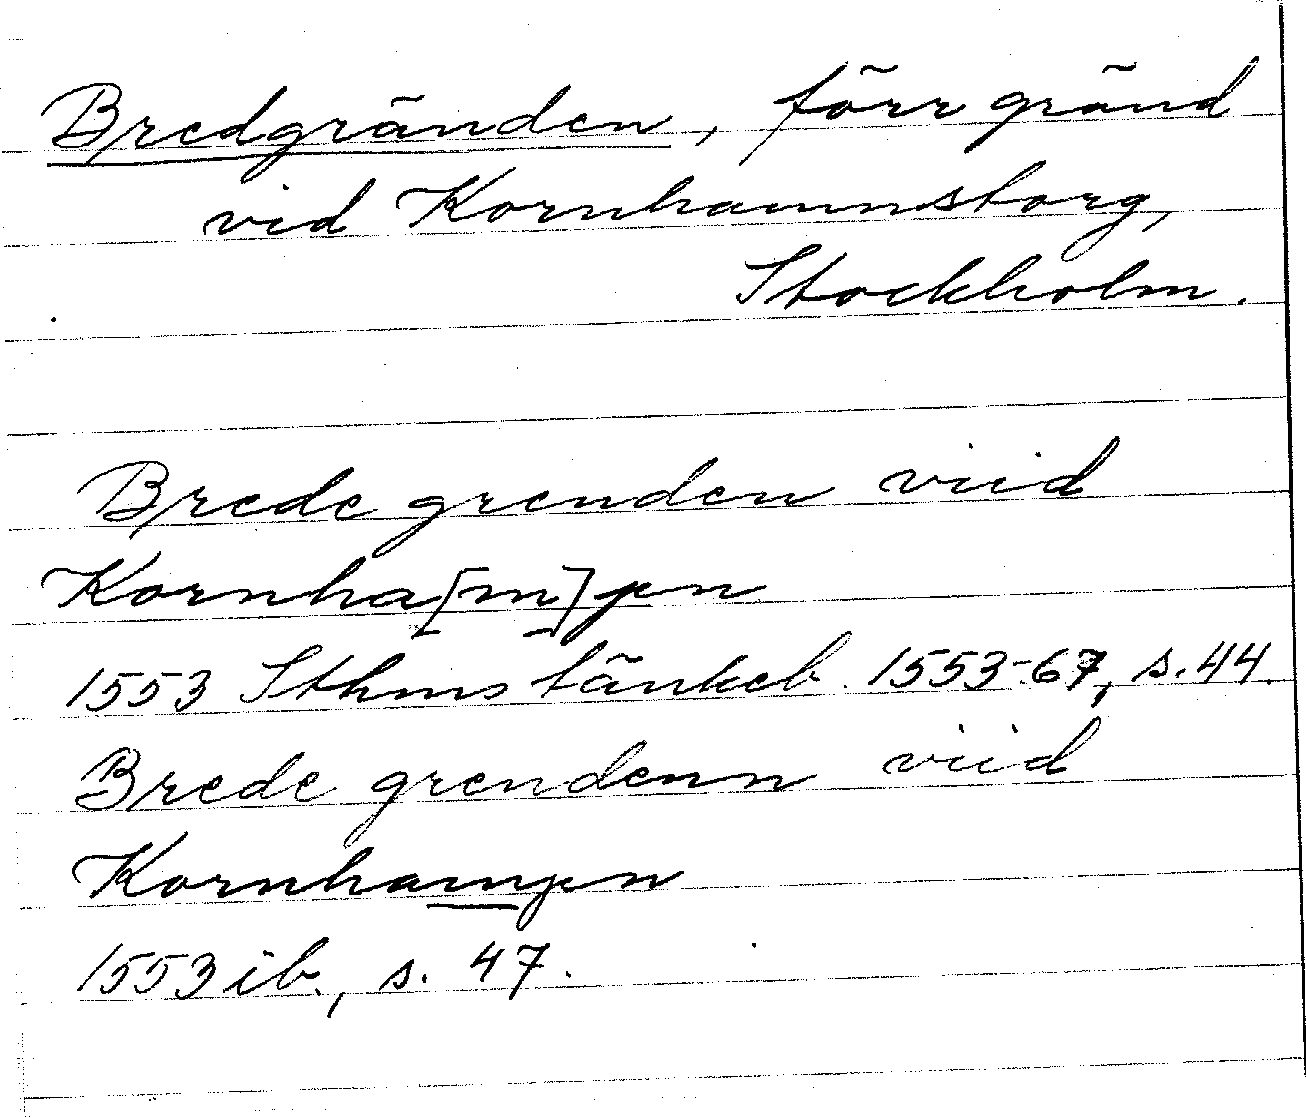 Bredgränden, förr gränd
vid Kornhamnstorg,
Stockholm.
Brede grenden viid
Kornha[m]pn
1553 Sthms tänkeb. 1553-67, s. 44.
Brede grendenn viid
Kornhampn
1553 ib., s. 47.